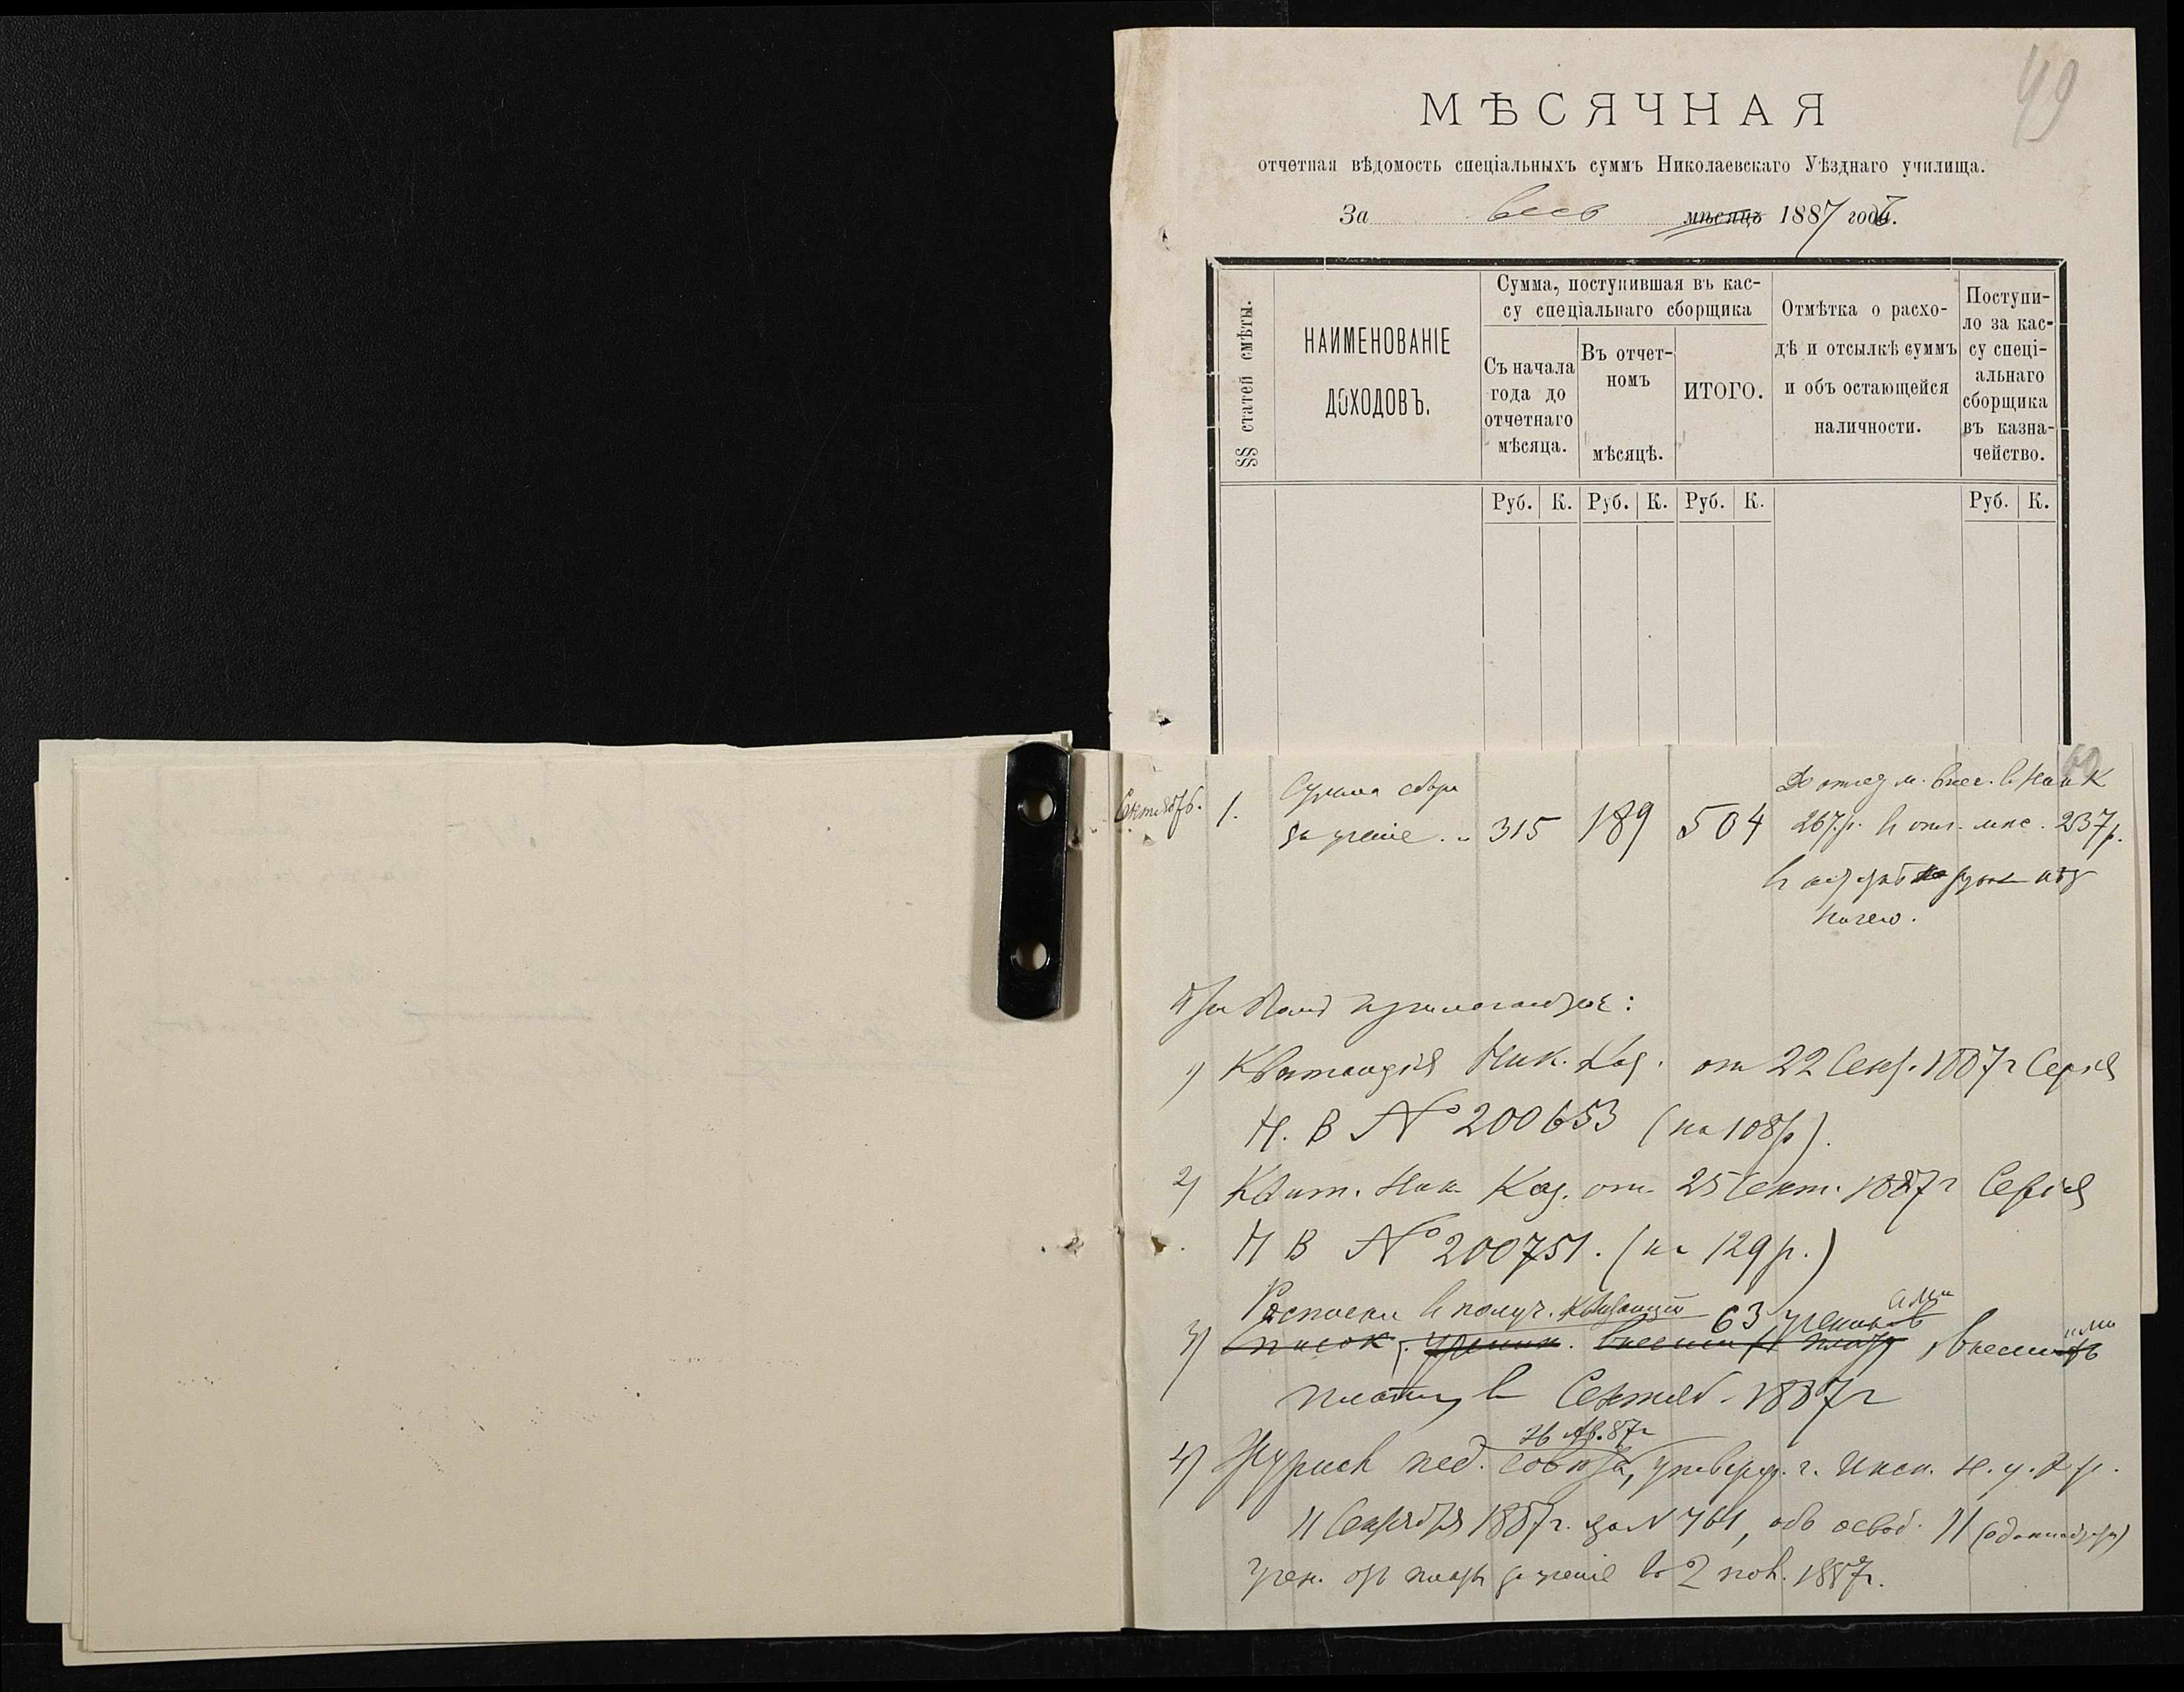 49
МѢСЯЧНАЯ
отчетная вѣдомость спеціальныхъ суммъ Николаевскаго Уѣзднаго училища.
За весь мѣсяцъ 1887 годъ.
§§ статей смѣты.
НАИМЕНОВАНІЕ
ДОХОДОВЪ.
Сумма, поступившая въ кас-
су спеціальнаго сборщика
Съ начала
года до
отчетнаго
мѣсяца.
Въ отчет-
номъ
мѣсяцѣ.
ИТОГО.
Отмѣтка о расхо-
дѣ и отсылкѣ суммъ
и объ остающейся
наличности.
Поступи-
ло за кас-
су спеці-
альнаго
сборщика
въ казна-
чейство.
Руб. К. Руб. К. Руб. К. Руб. К.
Сентябрь. 1. Сумма сбора
за ученіе 315 189 504
До отчед м. внес. в Ник К
267 р. в отч. мѣс. 237 р.
ничего.
При семъ прилагаются:
1) Квитанція Ник. Каз. от 22 Сент. 1887 г Серія
Н. В № 200653 (на 108 р).
2) Квит. Ник Каз. от 25 Сент. 1887 г Серія
Н В № 200751. (на 129 р.)
Росписки в получ. квитанцій 63 ученик ами
3) список учен. внесших плату, внесшими
плату в Сентяб. 1887 г
26 Ав. 87 г
4) Журнал пед. совѣта, утвержд. г. Инсп. н. у.
11 Сентября 1887 г. за N 761, объ освоб. 11 (одиннадцати)
учен. отъ платы за ученіе во 2 пол. 1887 г.